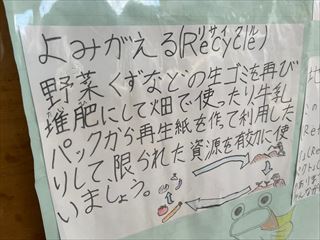 よみがえる(Recycle)
リサイクル
野菜くずなどの生ゴミを再び
堆肥にして畑で使ったり牛乳
パックから再生紙を作って利用した
りして、限られた資源を有効に使
いましょう。